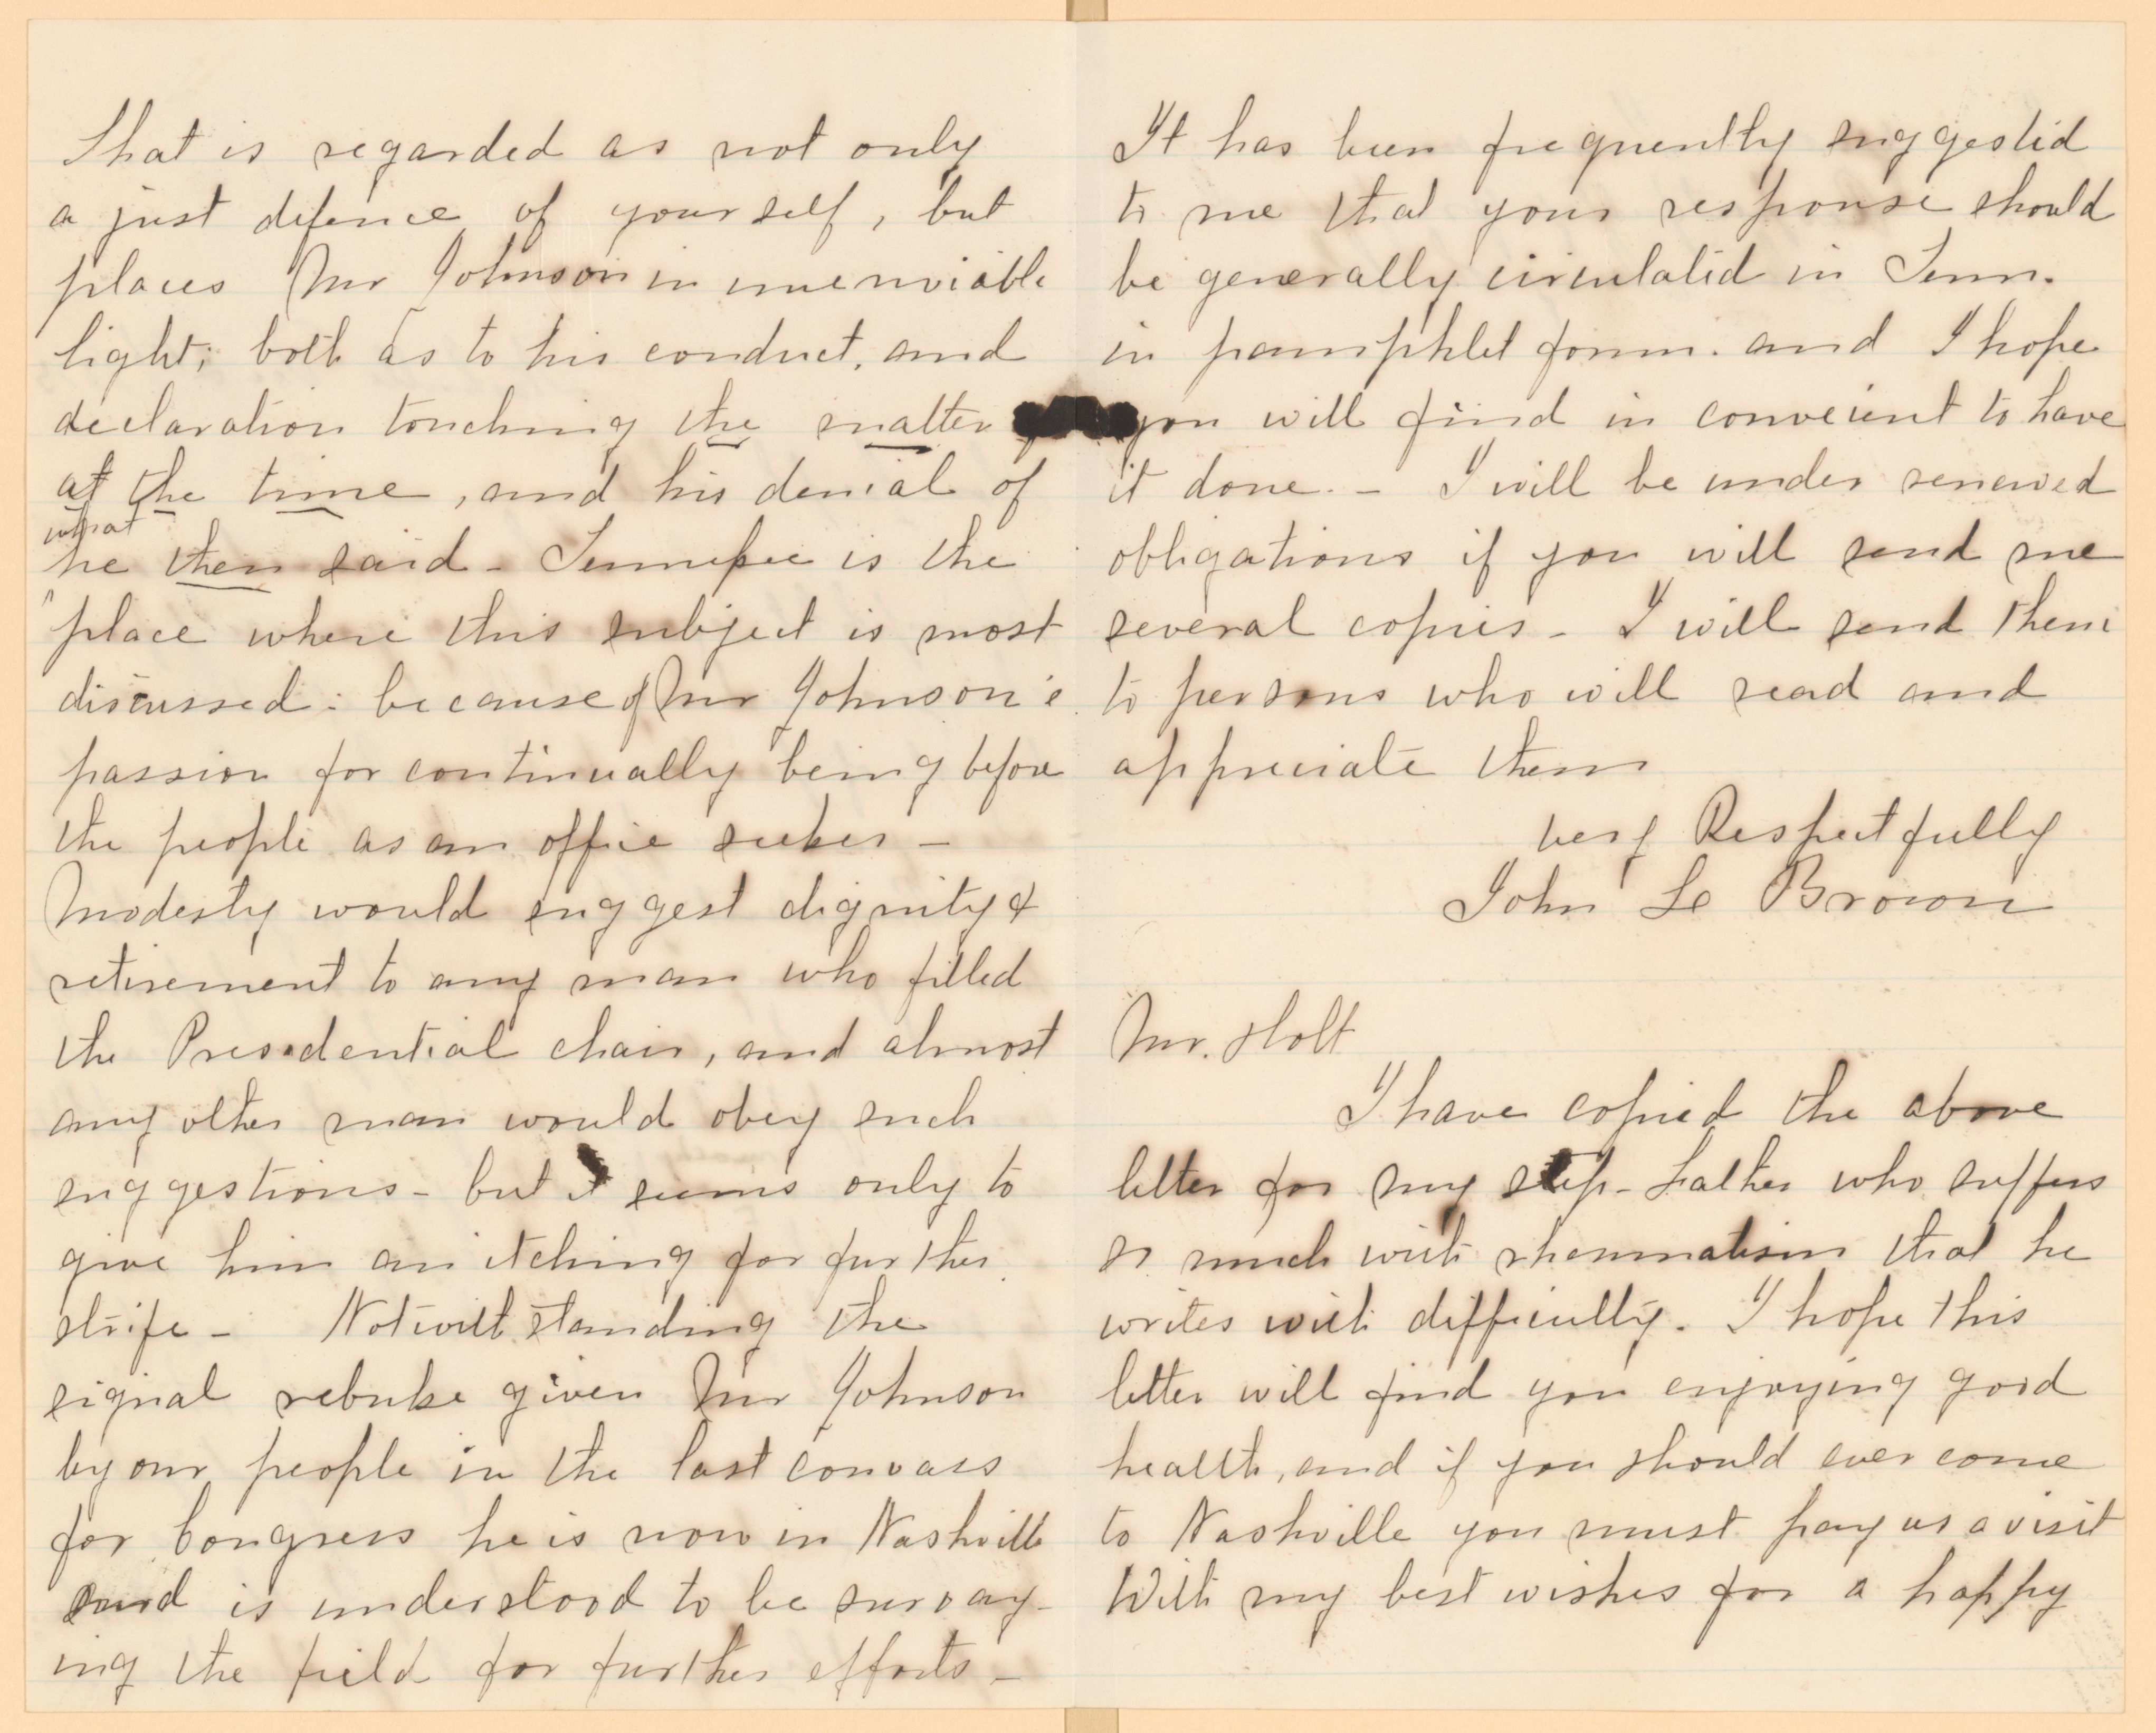 That is regarded as not only
a just defence of yourself, but
places Mr Johnson in unenviable
light; both as to his conduct, and
declaration touching the matter
at the time, and his denial of
what
he then said - Tennessee is the
place where this subject is most
discussed: because of Mr Johnson's
passion for continually being before
the people as an office seeker -
Modesty would suggest dignity &
retirement to any man who filled
the Presidential chair, and almost
any other man would obey such
suggestions - but it seems only to
give him an itching for further
strife - Notwithstanding the
signal rebuke given Mr Johnson
by our people in the last convass
for Congress he is now in Nashville
and is understood to be survay-
ing the field for further efforts -
It has been frequently suggested
to me that your response should
be generally circulated in Tenn.
in pamphlet form. and I hope
you will find in conveient to have
it done. - I will be under renewed
obligations if you will send me
several copies - I will send them
to persons who will read and
appreciate them
very Respectfully
John Le Brown
Mr. Holt
I have copied the above
letter for my step-father who suffers
so much with rheumatism that he
writes with difficulty. I hope this
letter will find you enjoying good
health, and if you should ever come
to Nashville you must pay us a visit
With my best wishes for a happy